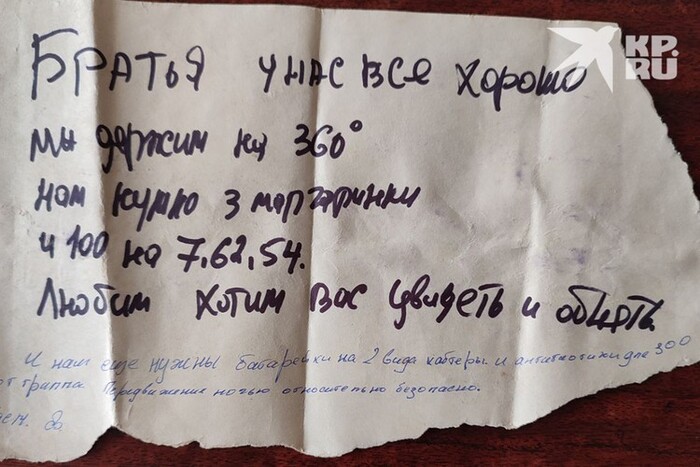 KP.
RU
БРАТЬЯ У НАС ВСЕ ХОРОШО
МЫ держим на 360°
нам нужно 3 маргаринки
и 100 на 7,62,54.
Любим хотим Вас увидеть и обнять.
И нам еще нужны батарейки на 2 вида и антибиотики для 300
от гриппа. Передвижение ночью относительно безопасно.